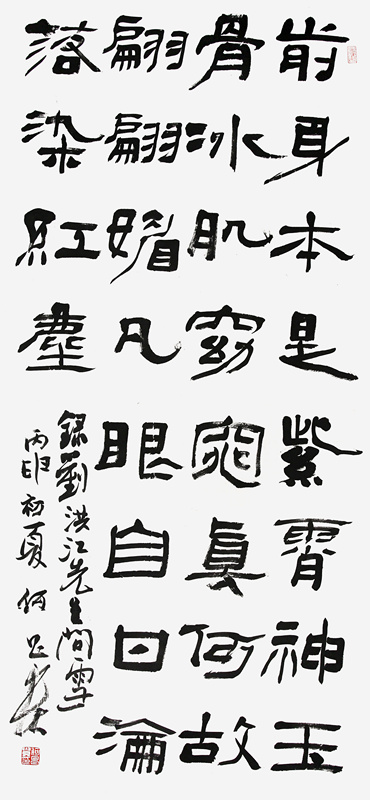 前身本是紫霄神玉
骨冰肌窈窕真何故
翩翩媚凡眼自甘淪
落染紅塵
錄劉洪江先生問雪
丙申初夏何